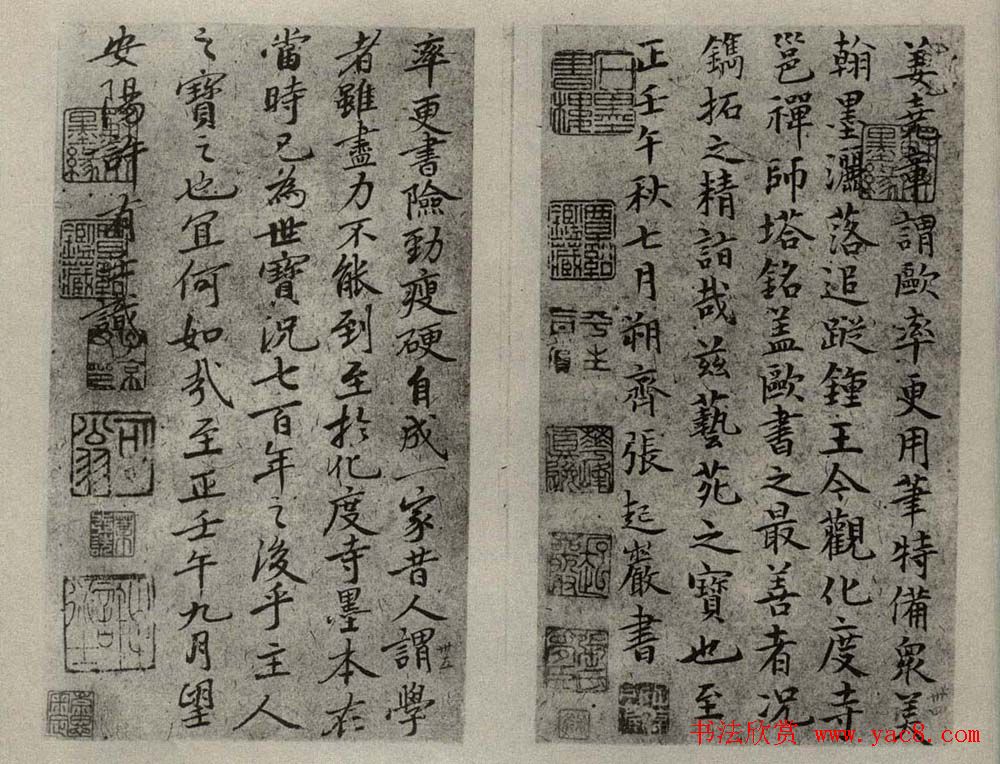 姜堯章謂歐率更用筆特備眾美
翰墨灑落追蹤鍾王今觀化度寺
邕禪師塔銘盖歐書之最善者況
鐫拓之精詣哉茲藝苑之寶也至
正壬午秋七月朔齊張起巖書
率更書險勁瘦硬自成一家昔人謂學
者雖盡力不能到至於化度寺墨本在
當時已為世寶況七百年之後乎主人
之寶之也宜何如哉至正壬午九月望
安陽許有壬識
墨緣
鑑藏
书法欣赏 www.yac8.com